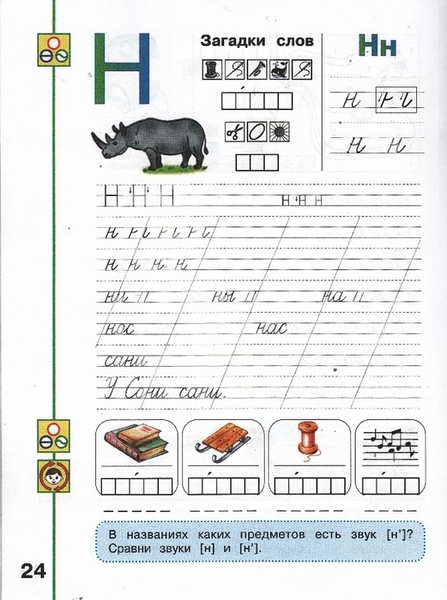 Н
Загадки слов
Нн
н н
н н
Н Н Н н н н
н
н н н н
ни ны на
нос нас
сани
У Сони сани.
В названиях каких предметов есть звук [н']?
Сравни звуки [н] и [н'].
24